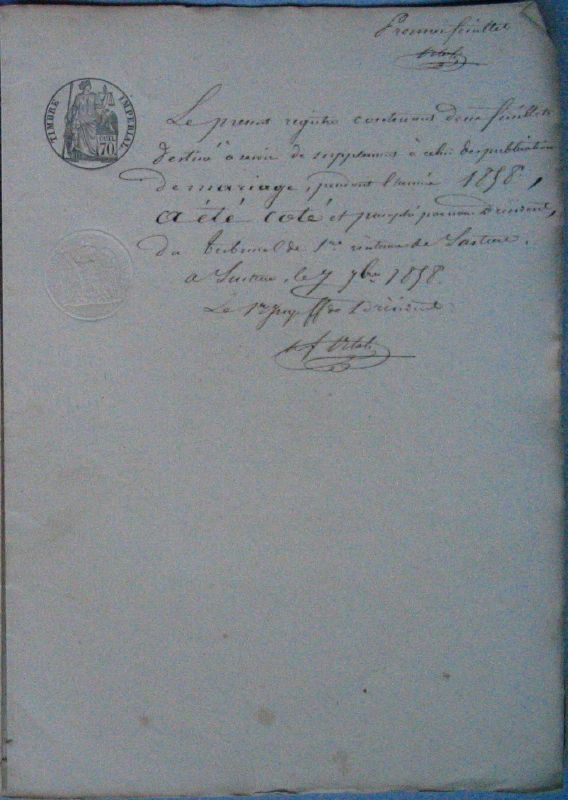 Premier feuillet
TIMBRE IMPERIAL
70
Le present registre contenant deux feuillets
destiné a servir de supplement à celui de publication
de mariage, pendant l'année 1858,
a été coté et par nous President,
du Tribunal de 1re instance de Sartene.
a Sartene, le 7 7bre 1858.
Le 1er Juge ff de President